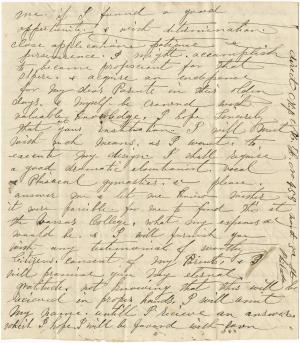 me if I found a good
opportunity & with determination
close application patience &
perseverance I might accomplish
& become proficient for that
sphere & aquire an independence
for my dear Parents in their olden
days & myself be crowned with
valuable knowledge. I hope sincerely
that your institution I will meet
with such means, as I want to
execute my design I shall require
a good dramatic elocutionist, vocal
& Phisical gymnastics, & please
answer me & let me know whether
it is possible for me to find this at
the Kansas College, what my expenses
would be & I will furnish you
with any testimonial of worthy
Citizens, consent of my Parents, & I
will promise you my eternal
gratitude, not knowing that this will be
recieved in proper hands. I will omit
my name, untill I recieve an answer
which I hope I will be favored with soon
direct